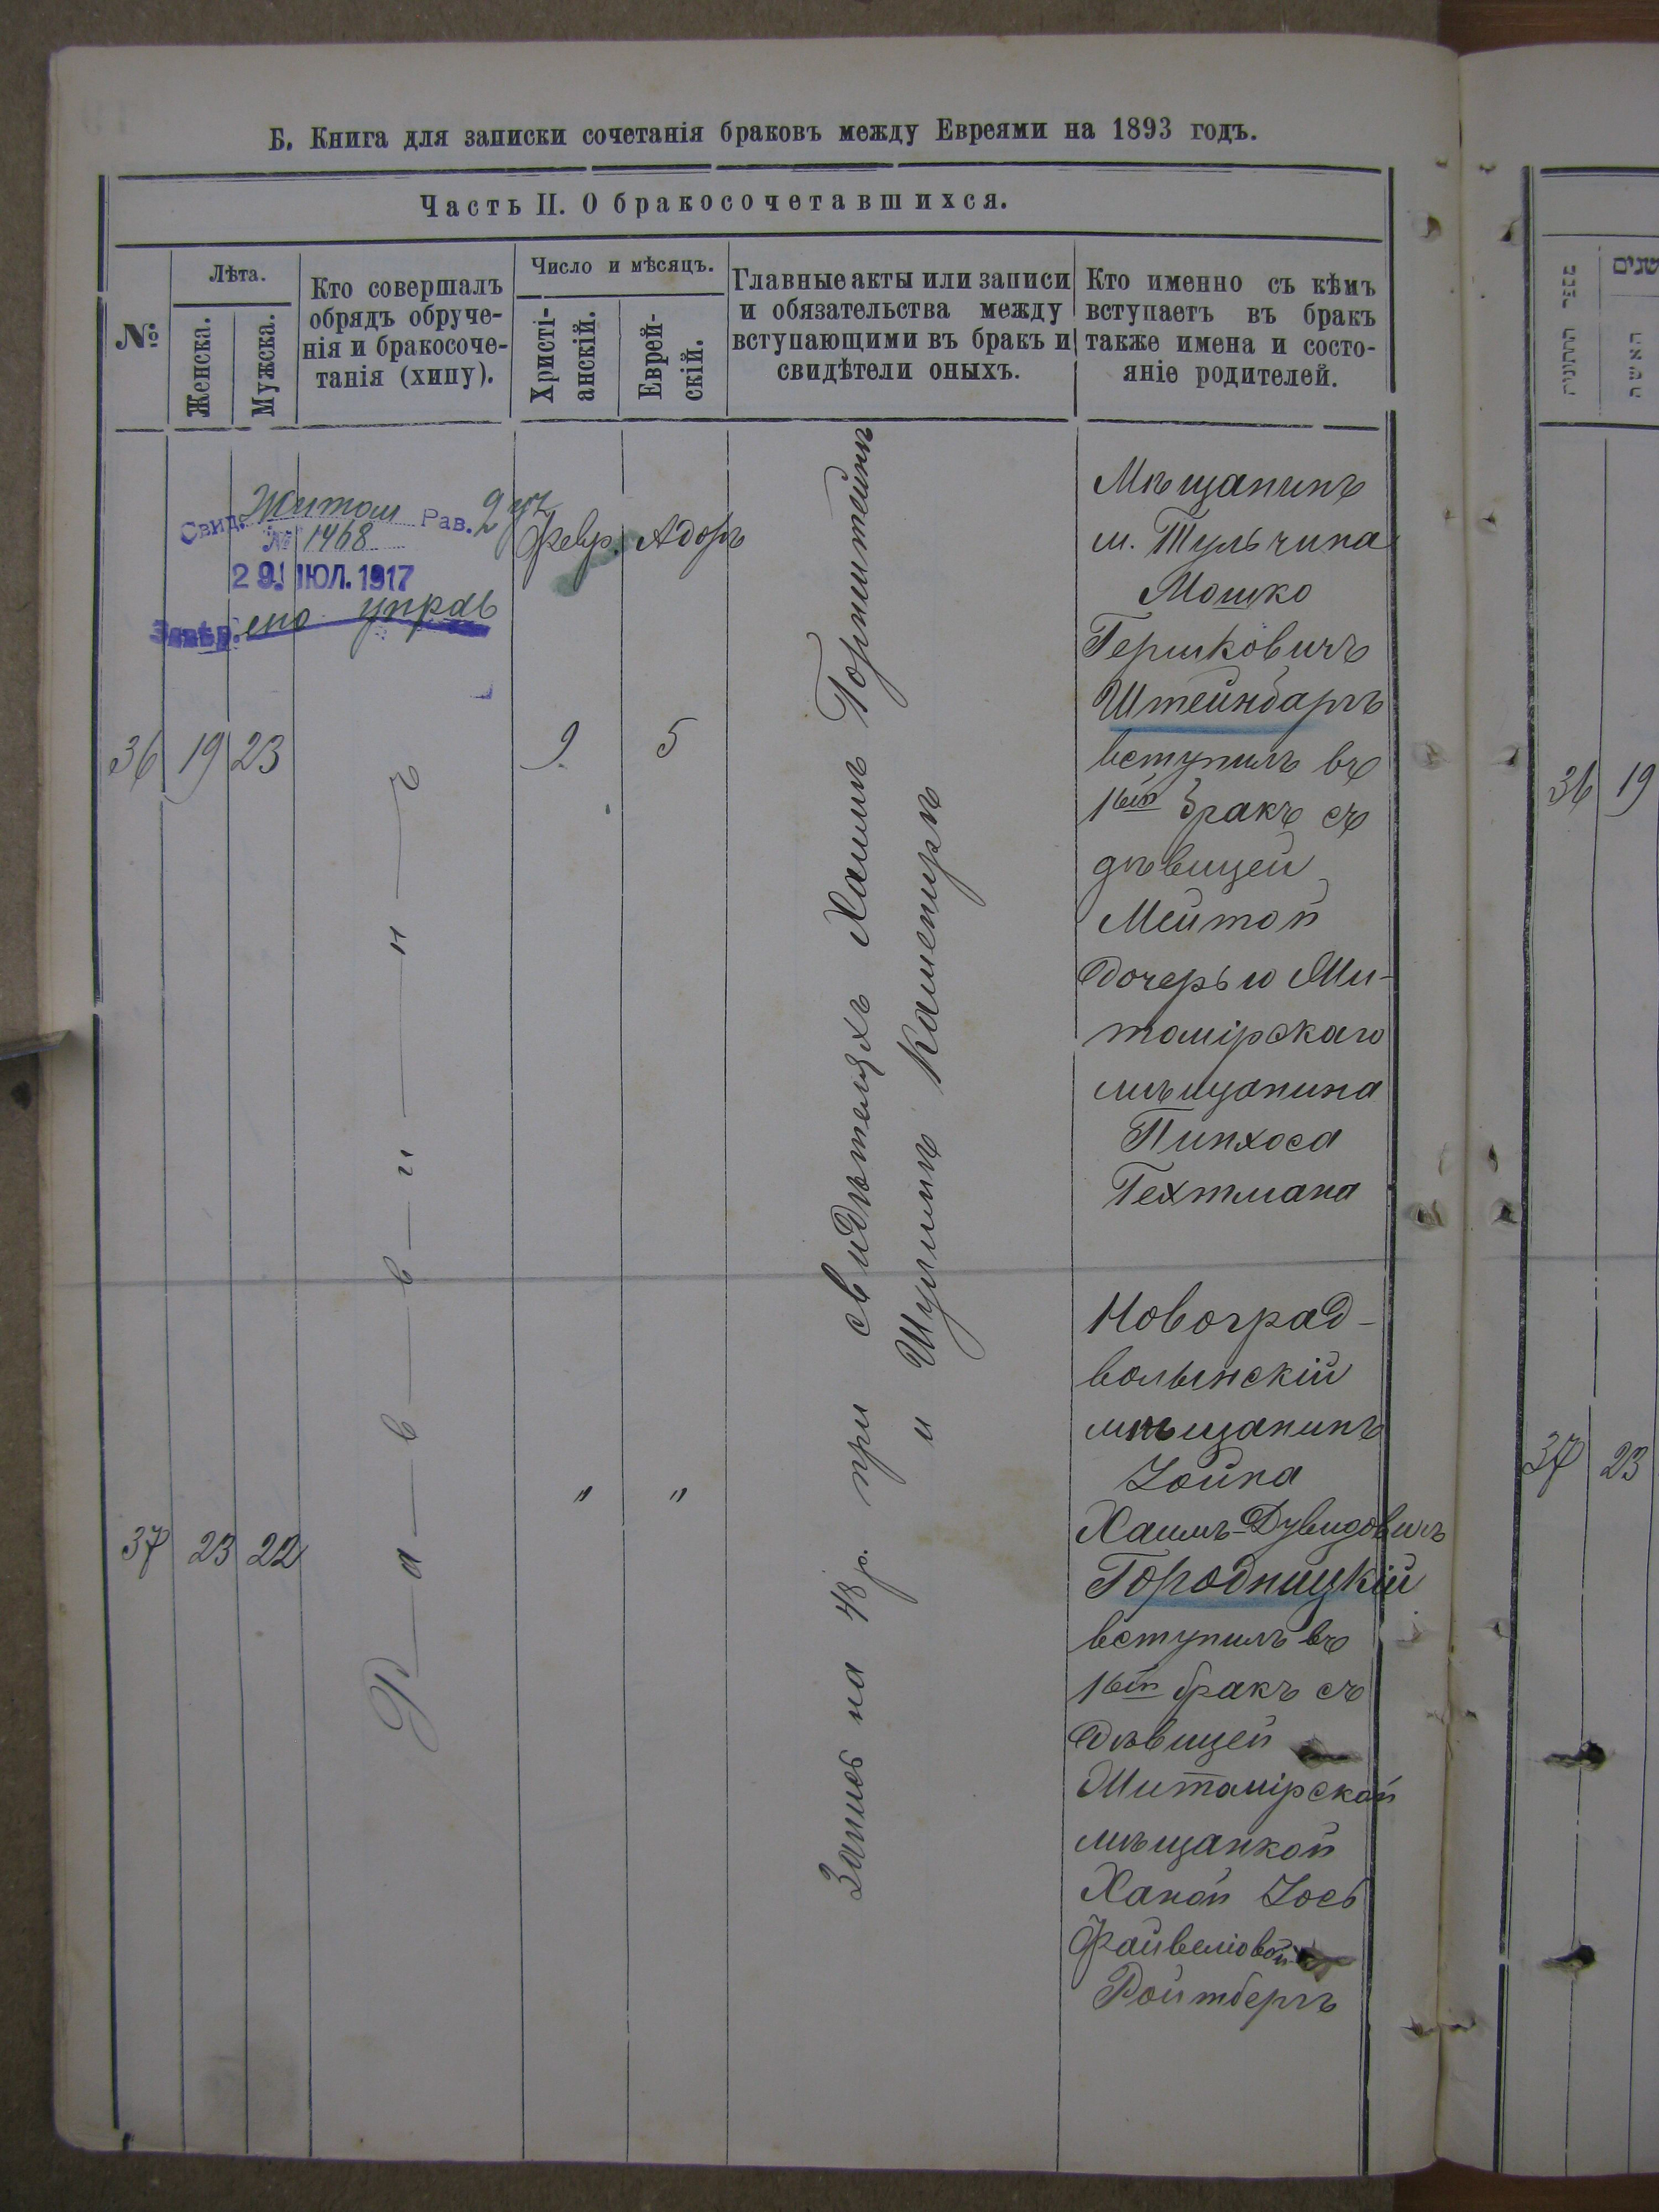 Б. Книга для записки сочетанія браковъ между Евреями на 1893 годъ.
Часть II. О бракосочетавшихся.
№
Лѣта.
Женска.
Мужска.
Кто совершалъ
обрядъ обруче-
нія и бракосоче-
танія (хипу).
Число и мѣсяцъ.
Христі-
анскій.
Еврей-
скій.
Главные акты или записи
и обязательства между
вступающими въ бракъ и
свидѣтели оныхъ.
Кто именно съ кѣмъ
вступаетъ въ бракъ
также имена и состо-
яніе родителей.
Свид. Житом Рав.
№ 1468
29 ІЮЛ. 1917
Февр. Адоръ
36 19 23
9 5
Раввинъ
Запись на 48 р. при свидѣтеляхъ Хаимъ Горнштейнъ
и Шулимъ Кашепиръ
Мѣщанинъ
м. Тульчина
Мошко
Гершковичъ
Штейнбаргъ
вступилъ въ
1вый бракъ съ
дѣвицей
Мейтой
дочерью Жи-
томірскаго
мѣщанина
Пинхоса
Гехтмана
37 23 22
" "
Новоград-
волынскій
мѣщанинъ
Іойна
Хаимъ-Дувидовичъ
Городницкій
вступилъ въ
1вый бракъ съ
дѣвицей
Житомірской
мѣщанкой
Ханой Іось
Файвеліовой
Ройтбергъ
שנים
36 19
37 23